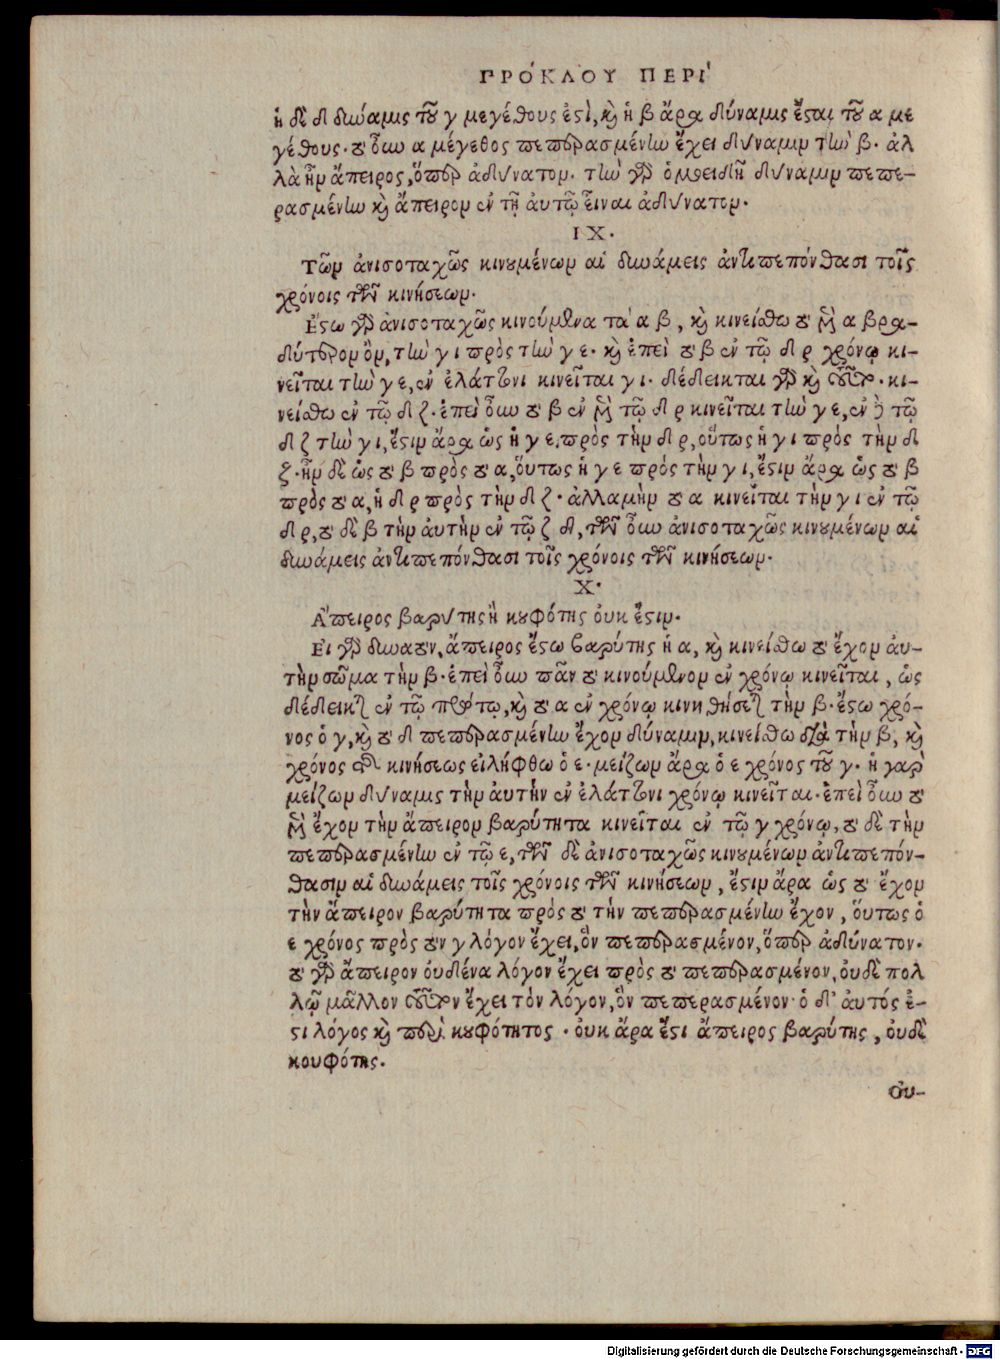 ΠΡΌΚΛΟΥ ΠΕΡῚ
ἡ δὲ δ δυνάμις τοῦ γ μεγέθους ἐστὶ, καὶ ἡ β ἄρα δύναμις ἔσται τοῦ α με
γέθους. τὸ οὖν α μέγεθος πεπερασμένην ἔχει δύναμιν τὴν β. ἀλ
λὰ ἦν ἄπειρος, ὅπερ ἀδύνατον. τὴν γὰρ ὁμοειδῆ δύναμιν πεπε-
ρασμένην καὶ ἄπειρον ἐν τῇ αὐτῷ εἶναι ἀδύνατον.
ΙΧ.
Τῶν ἀνισοταχῶς κινουμένων αἱ δυνάμεις ἀντιπεπόνθασι τοῖς
χρόνοις τῶν κινήσεων.
Ἔστω γὰρ ἀνισοταχῶς κινούμενα τὰ α β, καὶ κινείσθω τὸ μὲν α βρα-
δύτερον ὂν, τὴν γ ι πρὸς τὴν γ ε. καὶ ἐπεὶ τὸ β ἐν τῷ δ ρ χρόνῳ κι-
νεῖται τὴν γ ε, ἐν ἐλάττονι κινεῖται γ ι. δέδεικται γὰρ καὶ τοῦτο. κι-
νείσθω ἐν τῷ δ ζ. ἐπεὶ οὖν τὸ β ἐν μὲν τῷ δ ρ κινεῖται τὴν γ ε, ἐν δὲ τῷ
δ ζ τὴν γ ι, ἔστιν ἄρα ὡς ἡ γ ε, πρὸς τὴν δ ρ, οὕτως ἡ γ ι πρὸς τὴν δ
ζ. ἦν δὲ ὡς τὸ β πρὸς τὸ α, οὕτως ἡ γ ε πρὸς τὴν γ ι, ἔστιν ἄρα ὡς τὸ β
πρὸς τὸ α, ἡ δ ρ πρὸς τὴν δ ζ. ἀλλαμὴν τὸ α κινεῖται τὴν γ ι ἐν τῷ
δ ρ, τὸ δὲ β τὴν ἀυτὴν ἐν τῷ ζ δ, τῶν οὖν ἀνισοταχῶς κινουμένων αἱ
δυνάμεις ἀντιπεπόνθασι τοῖς χρόνοις τῶν κινήσεων.
Χ.
Ἄπειρος βαρύτης ἢ κουφότης οὐκ ἔστιν.
Εἰ γὰρ δυνατὸν, ἄπειρος ἔστω βαρύτης ἡ α, καὶ κινείσθω τὸ ἔχον ἀυ-
τὴν σῶμα τὴν β. ἐπεὶ οὖν πᾶν τὸ κινούμενον ἐν χρόνῳ κινεῖται, ὡς
δέδεικται ἐν τῷ πρώτῳ, καὶ τὸ α ἐν χρόνῳ κινηθήσεται τὴν β. ἔστω χρό-
νος ὁ γ, καὶ τὸ δ πεπερασμένην ἔχον δύναμιν, κινείσθω διὰ τὴν β, καὶ
χρόνος τῆς κινήσεως εἰλήφθω ὁ ε. μείζων ἄρα ὁ ε χρόνος τοῦ γ. ἡ γὰρ
μείζων δύναμις τὴν ἀυτὴν ἐν ἐλάττονι χρόνῳ κινεῖται. ἐπεὶ οὖν τὸ
μὲν ἔχον τὴν ἄπειρον βαρύτητα κινεῖται ἐν τῷ γ χρόνῳ, τὸ δὲ τὴν
πεπερασμένην ἐν τῷ ε, τῶν δὲ ἀνισοταχῶς κινουμένων ἀντιπεπόν-
θασιν αἱ δυνάμεις τοῖς χρόνοις τῶν κινήσεων, ἔστιν ἄρα ὡς τὸ ἔχον
τὴν ἄπειρον βαρύτητα πρὸς τὸ τὴν πεπερασμένην ἔχον, οὕτως ὁ
ε χρόνος πρὸς τὸν γ λόγον ἔχει, ὃν πεπερασμένον, ὅπερ ἀδύνατον.
τὸ γὰρ ἄπειρον οὐδένα λόγον ἔχει πρὸς τὸ πεπερασμένον, οὐδὲ πολ
λῷ μᾶλλον τοῦτον ἔχει τὸν λόγον, ὃν πεπερασμένον. ὁ δ' αὐτός ἐ-
στι λόγος καὶ περὶ κουφότητος. οὐκ ἄρα ἔστι ἄπειρος βαρύτης, οὐδὲ
κουφότης.
Οὐ-
Digitalisierung gefördert durch die Deutsche Forschungsgemeinschaft - DFG